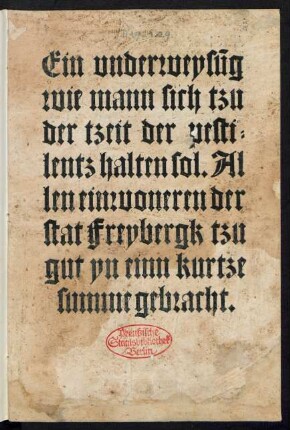 Ein underweysūg
wie mann sich tzu
der tzeit der pesti-
lentz halten sol. Al
len einwoneren der
stat Freybergk tzu
gut yn eynn kurtze
summe gebracht.
Preußische
Staatsbibliothek
Berlin